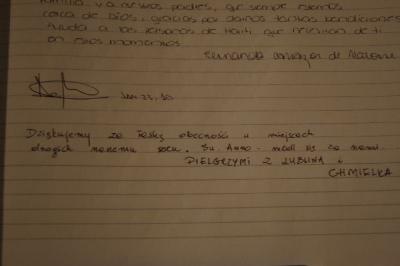 familia y a nuestros padres, que siempre estemos
cerca de Dios, gracias por darnos tantas bendiciones
Ayuda a las personas de Haiti que necesitan de ti
en esos momentos
Fernanda
Jan 23, 10
Dziękujemy za łaskę obecności w miejscach
drogich naszemu sercu. Św. Anno - módl się za nami.
PIELGRZYMI Z LUBLINA i
CHMIELKA